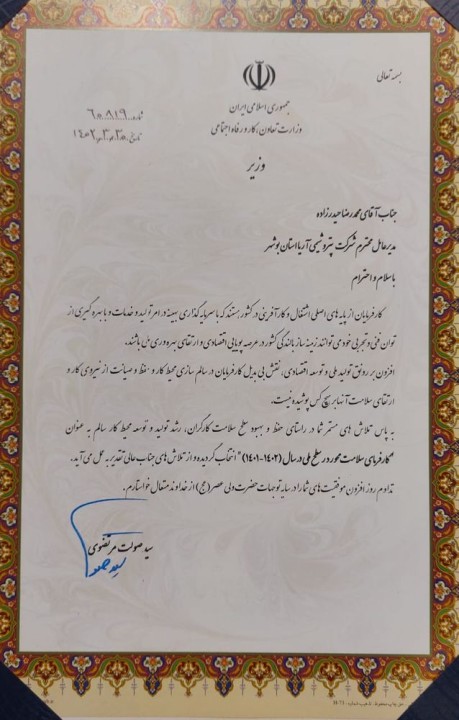 بسمه تعالی
جمهوری اسلامی ایران
وزارت تعاون، کار و رفاه اجتماعی
وزیر
شماره ۶۰۸۱۹
تاریخ ۱۴۰۲/۳/۳۰
جناب آقای محمدرضا حیدرزاده
مدیرعامل محترم شرکت پتروشیمی آریا استان بوشهر
با سلام و احترام
کارفرمایان از پایه های اصلی اشتغال و کارآفرینی در کشور هستند که با سرمایه گذاری بهینه در امر تولید و خدمات و با بهره گیری از
توان فنی و تجربی خود می توانند زمینه ساز بالندگی کشور در عرصه پویایی اقتصادی و ارتقای بهره وری ملی باشند.
افزون بر رونق تولید ملی و توسعه اقتصادی، نقش بی بدیل کارفرمایان در سالم سازی محیط کار و حفظ و صیانت از نیروی کار و
ارتقای سلامت آنها بر هیچ کس پوشیده نیست.
به پاس تلاش های مستمر شما در راستای حفظ و بهبود سطح سلامت کارگران، رشد تولید و توسعه محیط کار سالم به عنوان
"کارفرمای سلامت محور در سطح ملی در سال (۱۴۰۲-۱۴۰۱)" انتخاب گردیده و از تلاش های جناب عالی تقدیر به عمل می آید.
تداوم روز افزون موفقیت های شما را در سایه توجهات حضرت ولی عصر (عج) از خداوند متعال خواستارم.
سید صولت مرتضوی